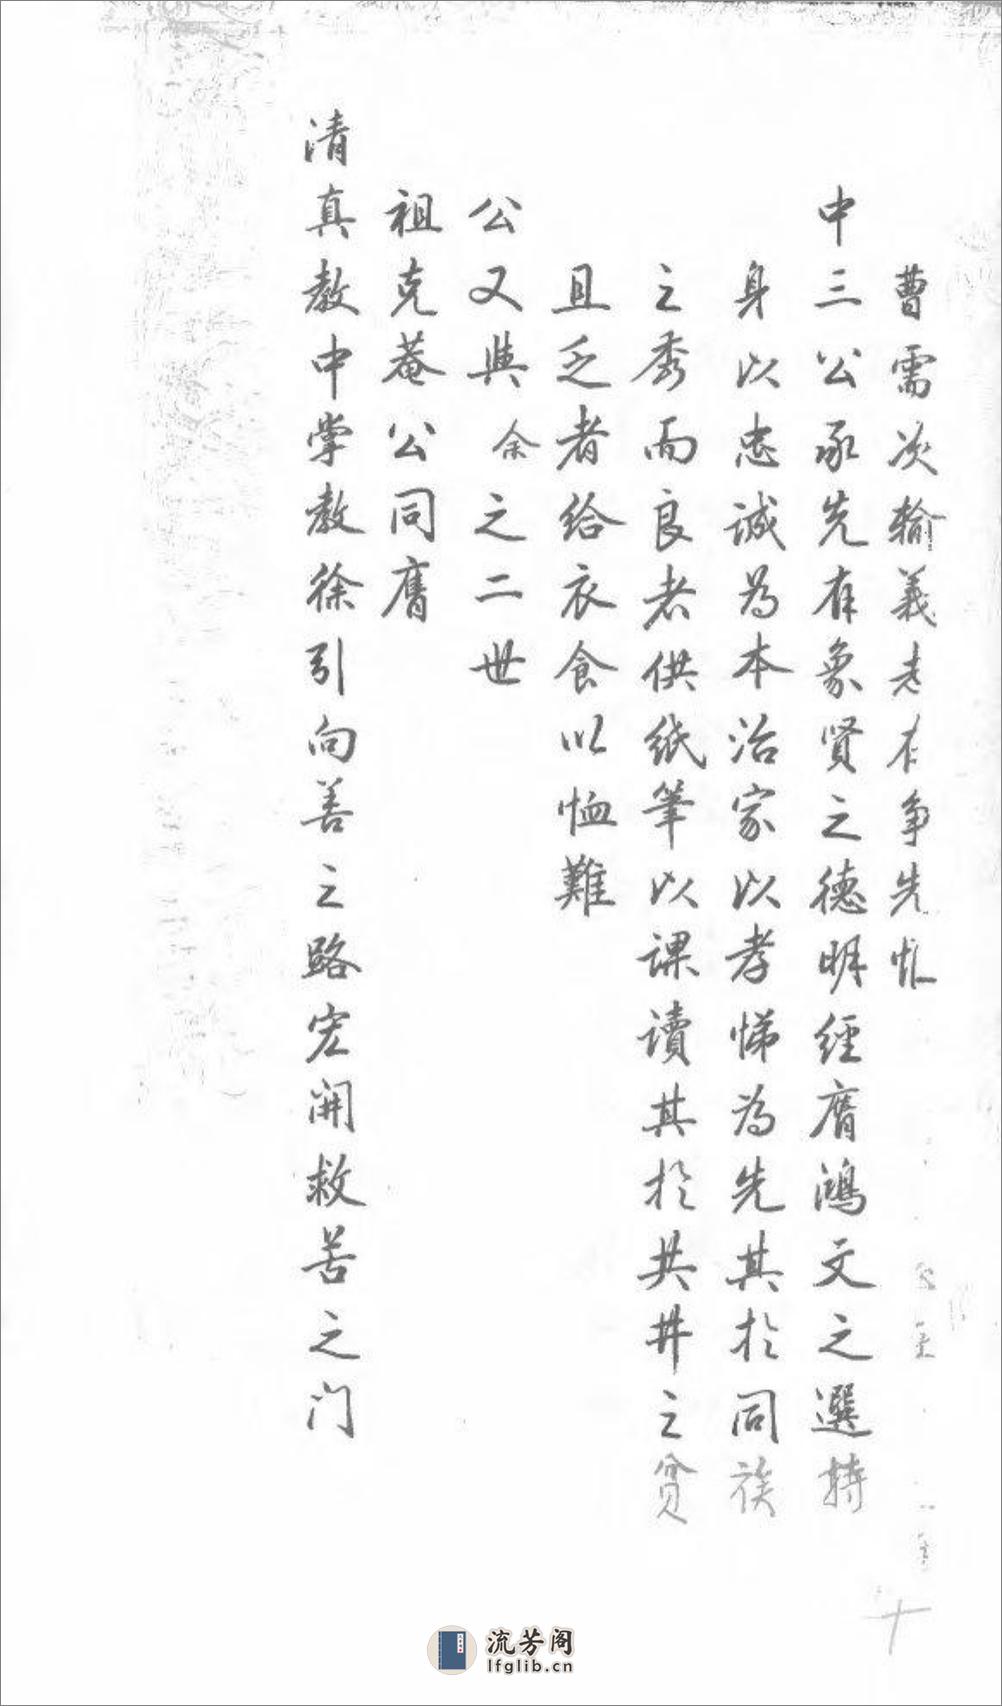 曹需次輸義者有争先恐
中三公承先有象賢之德明經膺鴻文之選持
身以忠誠為本治家以孝悌為先其於同族
之秀而良者供紙筆以課讀其於共井之貧
且乏者給衣食以恤難
公又與余之二世
祖克菴公同膺
清真教中掌教徐引向善之路宏開救苦之门
十
流芳阁
lfglib.cn